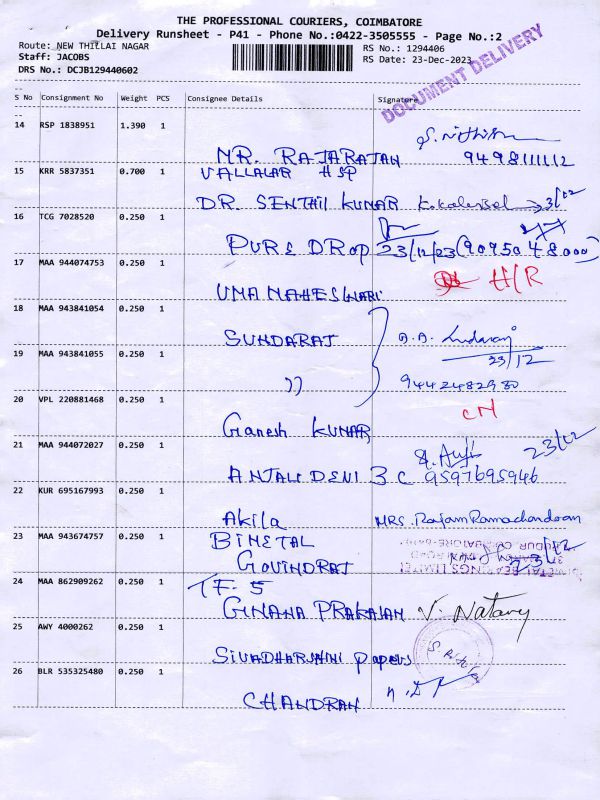 THE PROFESSIONAL COURIERS, COIMBATORE
Delivery Runsheet - P41 - Phone No.:0422-3505555 - Page No.:2
Route: NEW THILLAI NAGAR
RS No.: 1294406
Staff: JACOBS
RS Date: 23-Dec-2023
DRS No.: DCJB129440602
DOCUMENT DELIVERY
S No Consignment No Weight PCS Consignee Details Signature
14 RSP 1838951 1.390 1
MR. RAJARAJAN 9498111112
15 KRR 5837351 0.700 1 VALLALAR HSP
DR. SENTHIL KUMAR
16 TCG 7028520 0.250 1
PURE DROP 23/12/23 (9095048000)
17 MAA 944074753 0.250 1 H/R
UMA MAHESWARI
18 MAA 943841054 0.250 1
SUNDARAJ
23/12
19 MAA 943841055 0.250 1
〃 9442482980
20 VPL 220881468 0.250 1 CN
Ganesh KUMAR
21 MAA 944072027 0.250 1 23/12
ANJALI DENI 3 C 9597695946
22 KUR 695167993 0.250 1
Akila MRS. Rajam Ramachandran
23 MAA 943674757 0.250 1 BIMETAL
GOVINDRAJ 23/12
24 MAA 862909262 0.250 1 T.F. 5
GNANA PRAKASAM V. Natary
25 AWY 4000262 0.250 1
SIVADHARSHNI papers
26 BLR 535325480 0.250 1
CHANDRAN